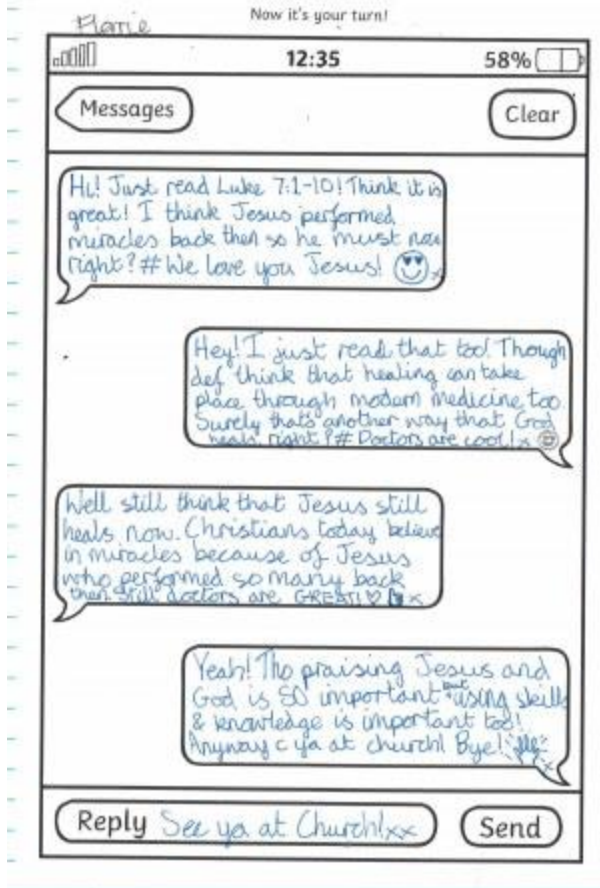 Now it's your turn!
Florrie
12:35
58%
Messages
Clear
Hi! Just read Luke 7:1-10! Think it is
great! I think Jesus performed
miracles back then so he must now
right? # We love you Jesus! x
Hey! I just read that too! Though
def think that healing can take
place through modern medicine too
Surely that's another way that God
heals, right? # Doctors are cool! x
Well still think that Jesus still
heals now. Christians today believe
in miracles because of Jesus
who performed so many back
then. Still doctors are GREAT! x
Yeah! Tho praising Jesus and
God is SO important but using skills
& knowledge is important too!
Anyway c ya at church! Bye! x
Reply See ya at Church!xx
Send